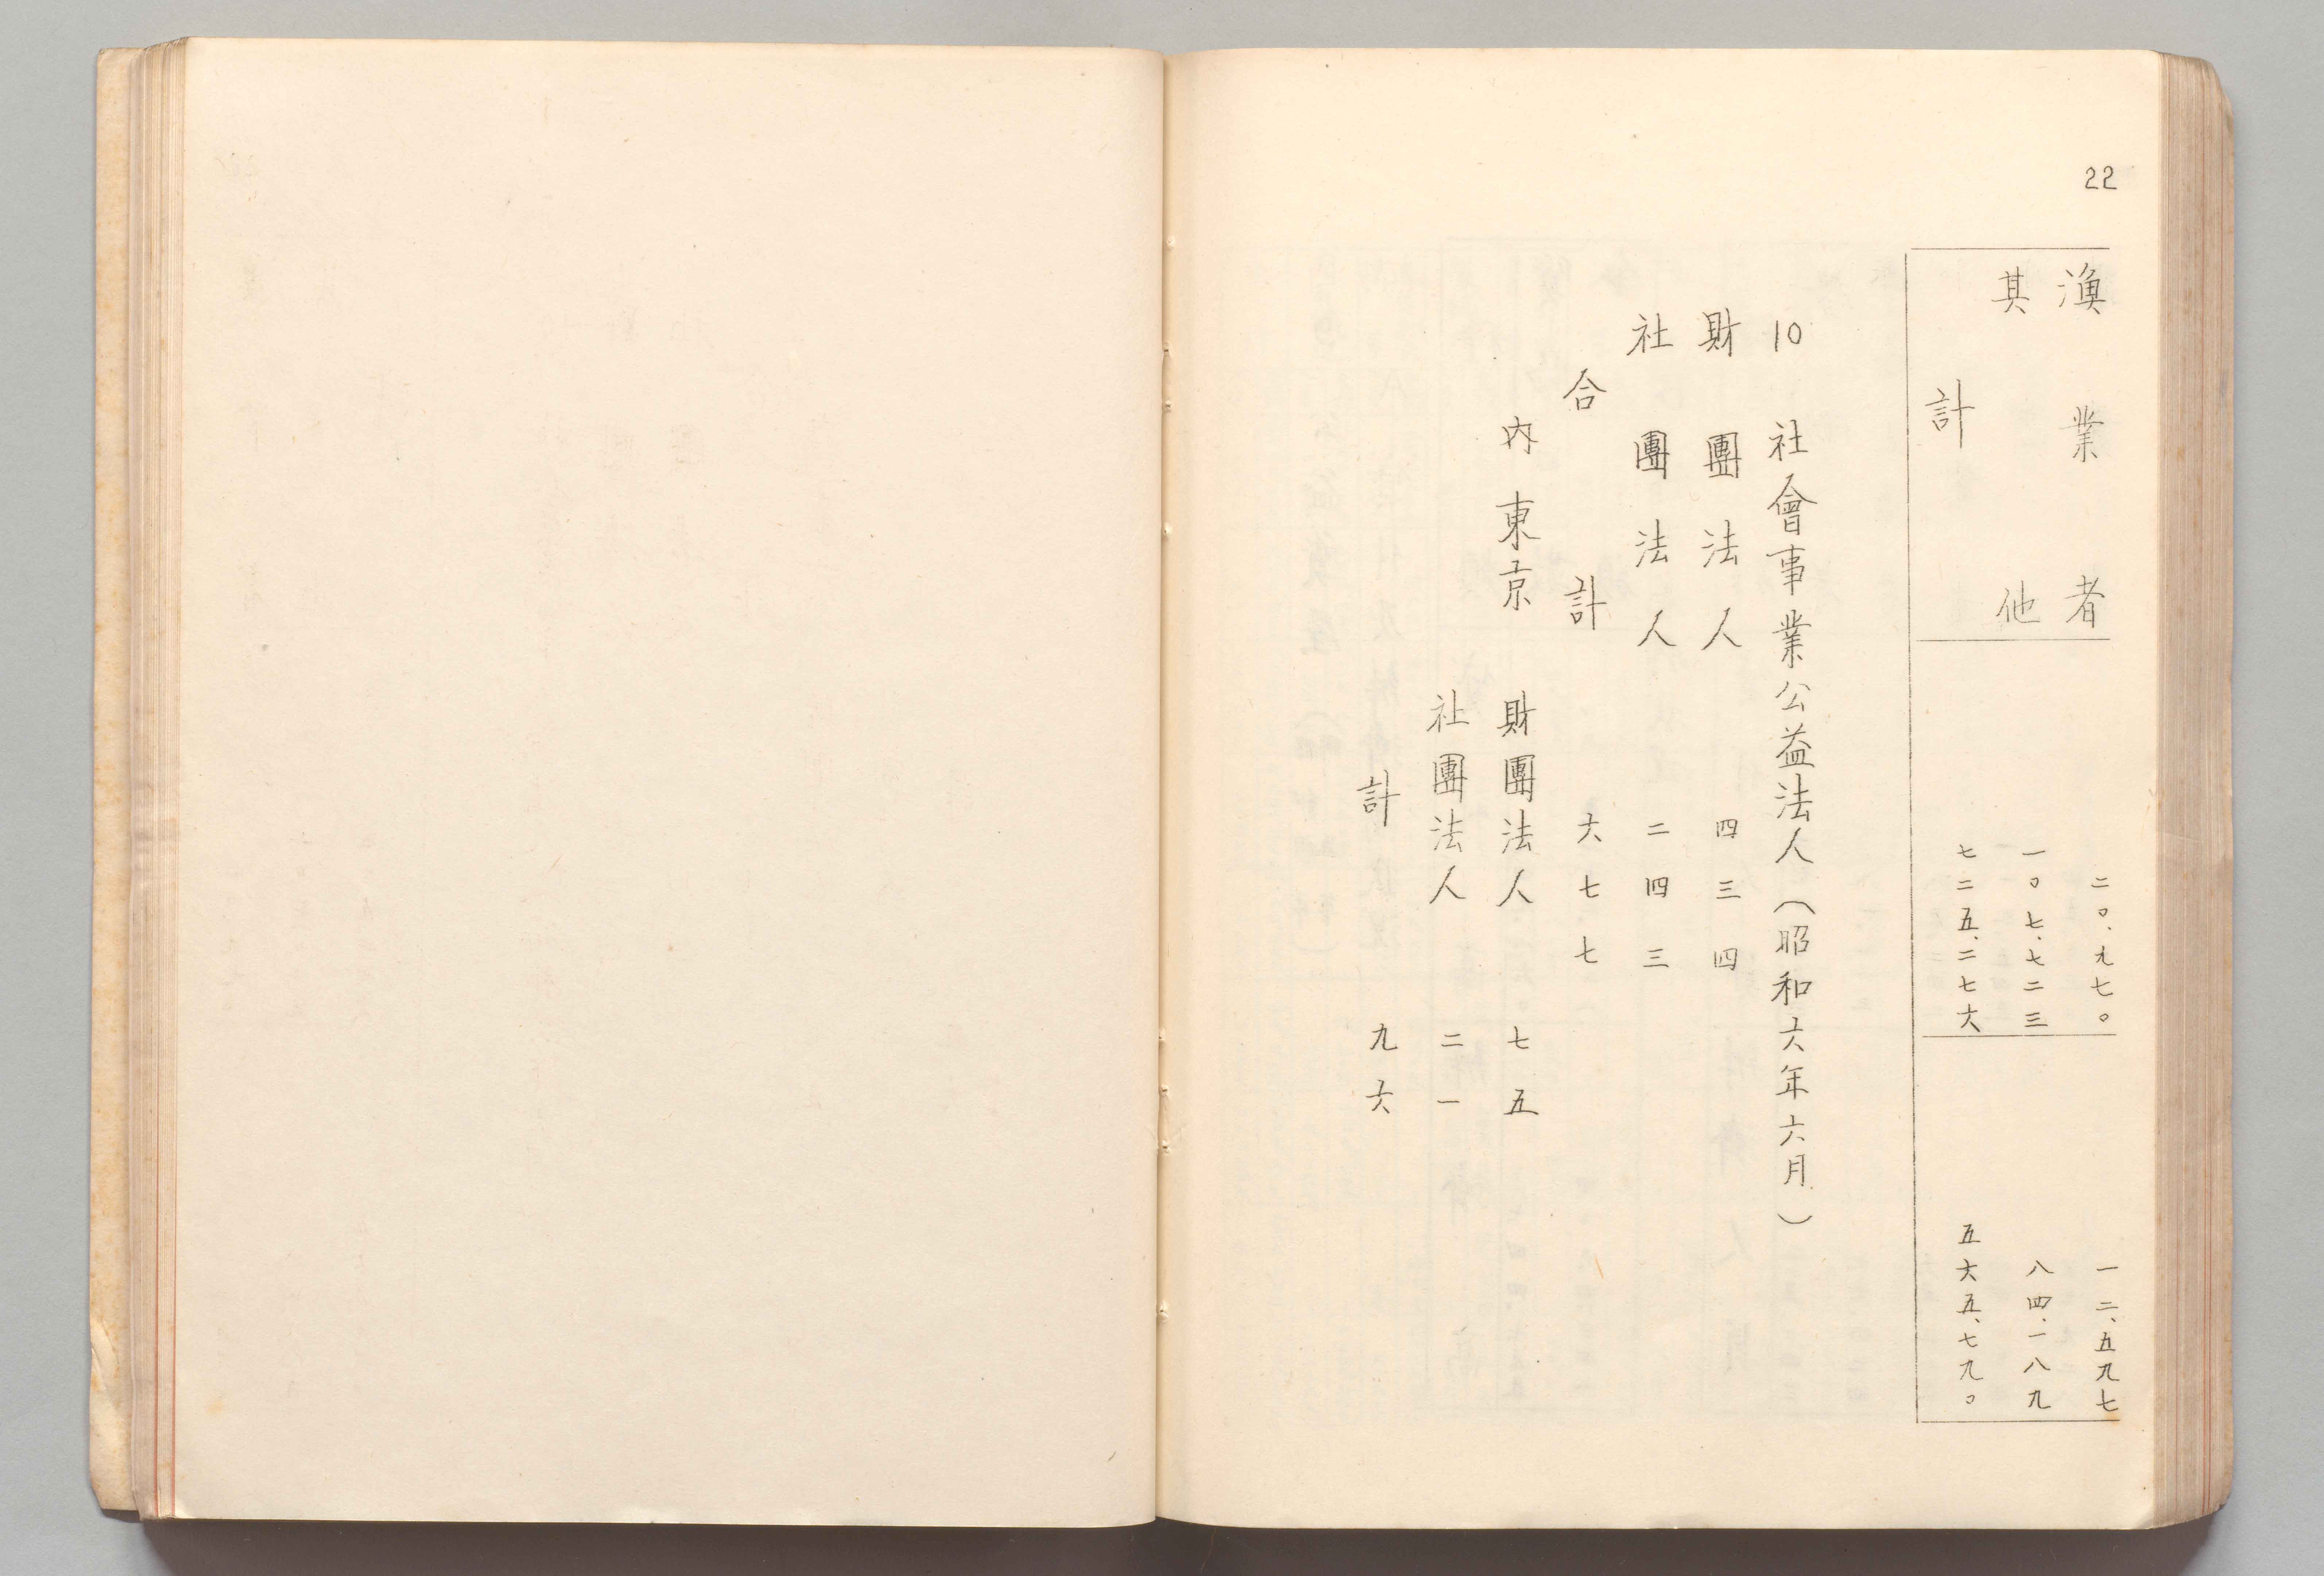 22
漁業者 二〇、九七〇 一二、五九七
其他 一〇七、七二三 八四、一八九
計 七二五、二七六 五六五、七九〇
10 社會事業公益法人（昭和六年六月）
財團法人 四三四
社團法人 二四三
合計 六七七
內東京 財團法人 七五
社團法人 二一
計 九六